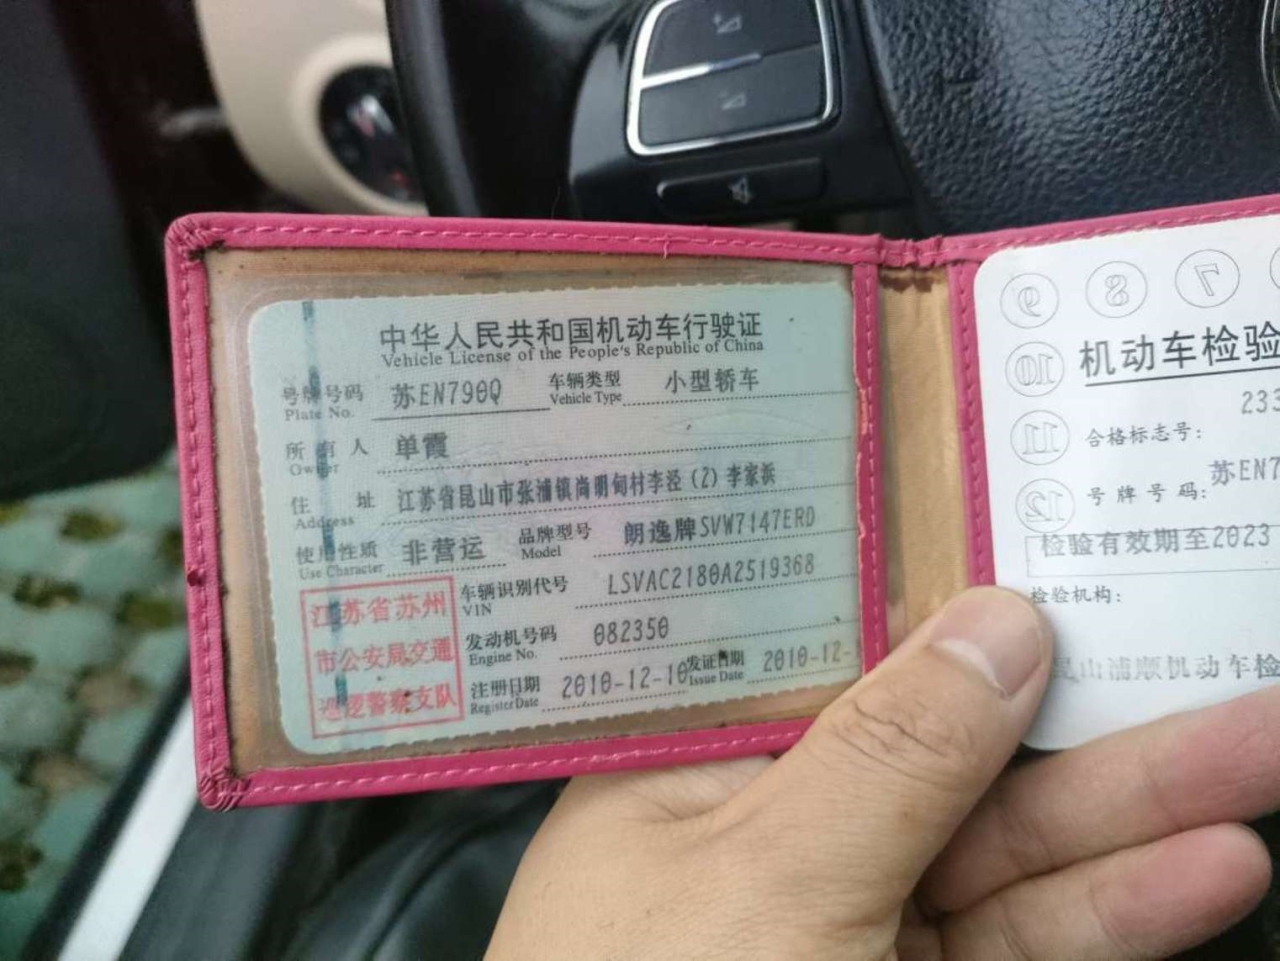 中华人民共和国机动车行驶证
Vehicle License of the People's Republic of China
号牌号码 苏EN790Q 车辆类型 小型轿车
Plate No. Vehicle Type
所有人 单霞
Owner
住址 江苏省昆山市张浦镇尚明甸村李泾(2)李家浜
Address
使用性质 非营运 品牌型号 朗逸牌SVW7147ERD
Use Character Model
车辆识别代号 LSVAC2180A2519368
VIN
发动机号码 082350
Engine No.
注册日期 2010-12-10 发证日期 2010-12-
Register Date Issue Date
江苏省苏州
市公安局交通
巡逻警察支队
9 8 7
10
11
12
机动车检验
233
合格标志号:
号牌号码: 苏EN7
检验有效期至2023
检验机构:
昆山浦顺机动车检